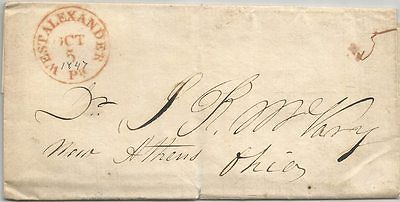 WEST ALEXANDER
OCT
5
1847
Pa
5
Dr. J R McVary
New Athens Ohio